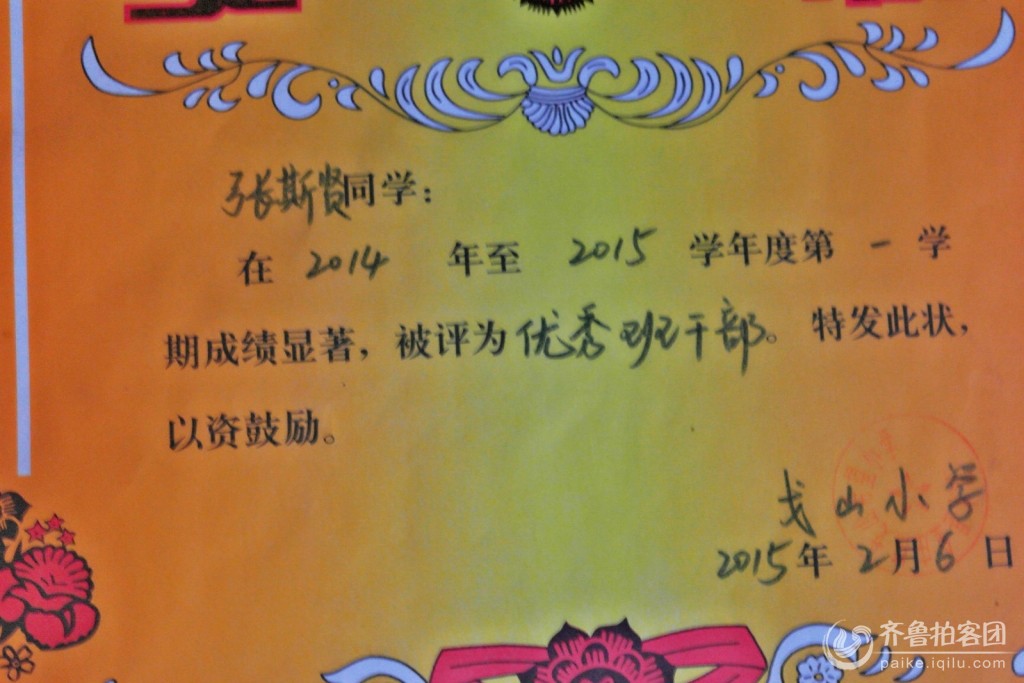 张斯贤同学:
在 2014 年至 2015 学年度第一学
期成绩显著，被评为优秀班干部。特发此状，
以资鼓励。
戈山小学
2015年2月6日
齐鲁拍客团
paike.iqilu.com